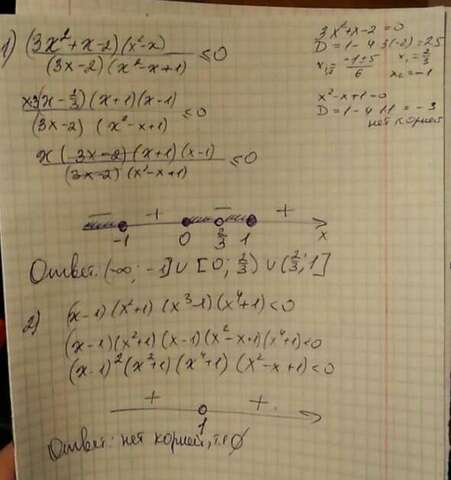 1) (3x²+x-2)(x²-x) / (3x-2)(x²-x+1) ≤0
3x²+x-2=0
D=1-4·3(-2)=25
x₁,₂ = -1±5 / 6 x₁=2/3
x₂=-1
x²-x+1=0
D=1-4·1·1=-3
нет корней
x·3(x-2/3)(x+1)(x-1) / (3x-2)(x²-x+1) ≤0
x(3x-2)(x+1)(x-1) / (3x-2)(x²-x+1) ≤0
- + - +
-1 0 2/3 1 x
Ответ: (-∞; -1]∪[0; 2/3)∪(2/3; 1]
2) (x-1)(x²+1)(x³-1)(x⁴+1)<0
(x-1)(x²+1)(x-1)(x²-x+1)(x⁴+1)<0
(x-1)²(x²+1)(x⁴+1)(x²-x+1)<0
+ +
1
Ответ: нет корней, т.е ∅